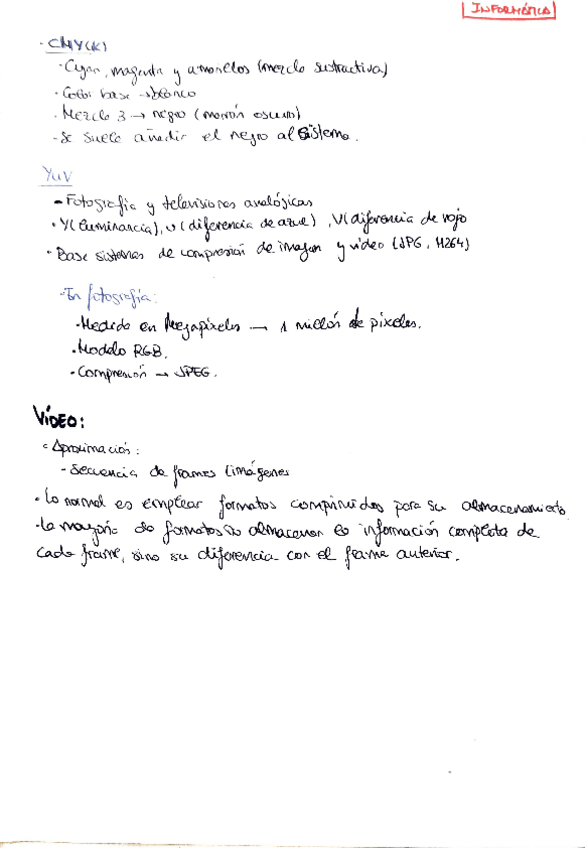 INFORMÁTICA
· CMY(K)
- Cyan, magenta y amarillos (mezcla sustractiva)
· Color base → blanco
· Mezcla 3 → negro (marrón oscuro)
- Se suele añadir el negro al sistema.
YUV
- Fotografía y televisiones analógicas
· Y (luminancia), U (diferencia de azul), V (diferencia de rojo
· Base sistemas de compresión de imagen y vídeo (JPG, H264)
- En fotografía:
· Medido en Megapíxeles → 1 millón de píxeles.
· Modelo RGB.
· Compresión → JPEG.
VÍDEO:
· Aproximación:
- Secuencia de frames (imágenes
· Lo normal es emplear formatos comprimidos para su almacenamiento
· La mayoría de formatos no almacenan la información completa de
cada frame, sino su diferencia con el frame anterior.